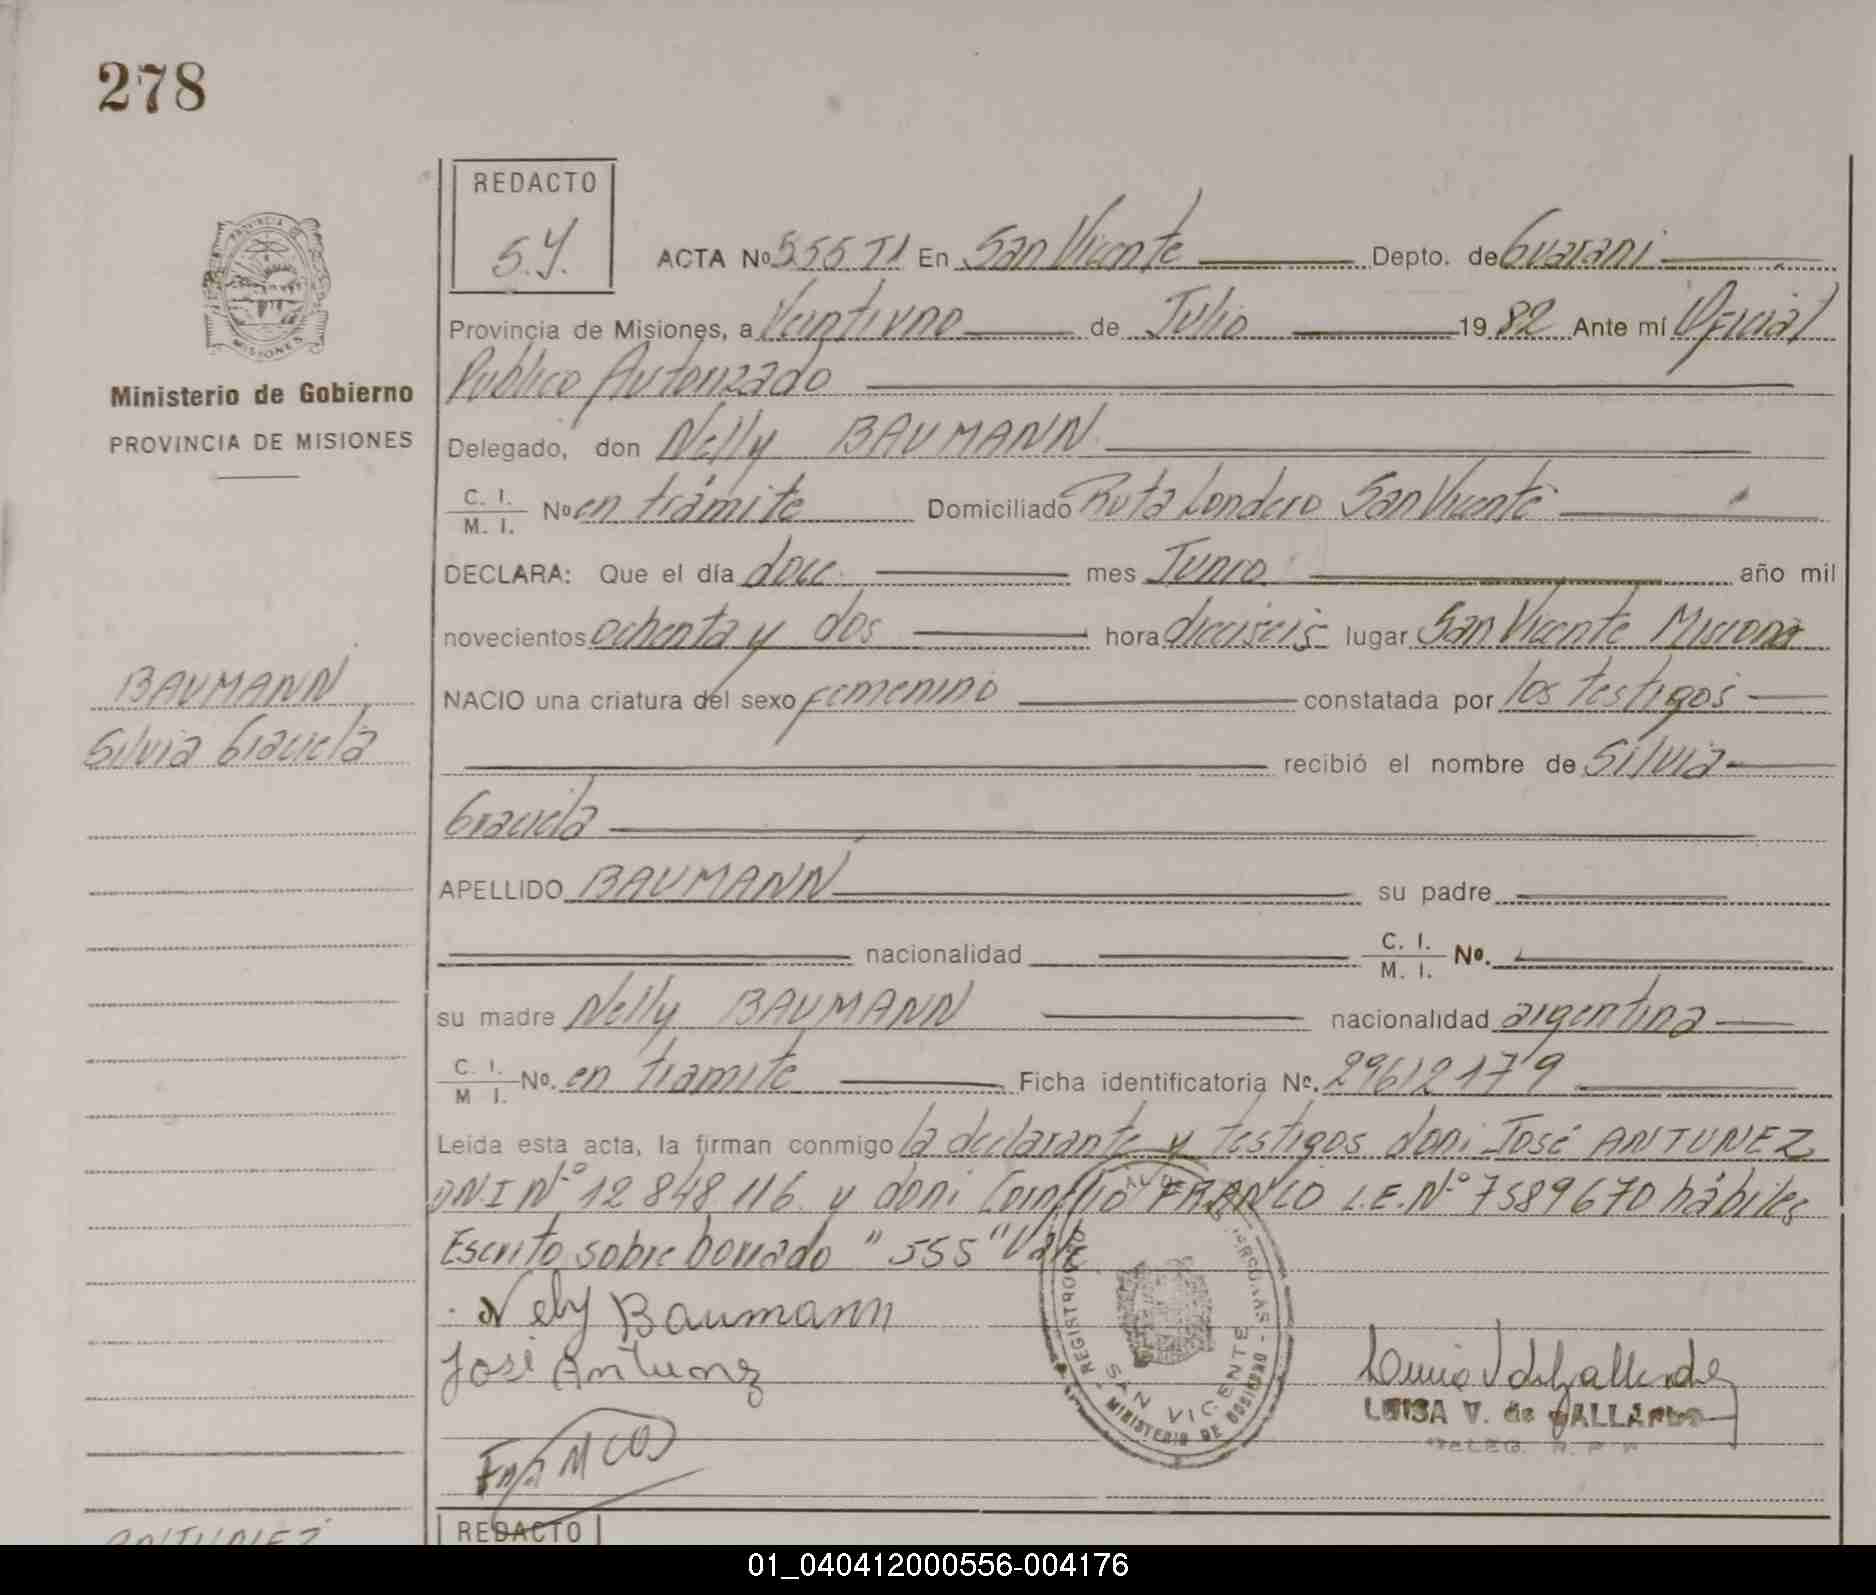 278
REDACTO
S.Y.
ACTA Nº 555 TI En San Vicente Depto. de Guaraní
Provincia de Misiones, a Veintiuno de Julio 1982 Ante mí Oficial
Publico Autorizado
Ministerio de Gobierno
PROVINCIA DE MISIONES
Delegado, don Nelly BAUMANN
C. I. / M. I. Nº en trámite Domiciliado Ruta Londero San Vicente
DECLARA: Que el día doce mes Junio año mil
novecientos ochenta y dos hora dieciseis lugar San Vicente Misiones
BAUMANN
Silvia Graciela
NACIO una criatura del sexo femenino constatada por los testigos
recibió el nombre de Silvia
Graciela
APELLIDO BAUMANN su padre
nacionalidad C. I. / M. I. Nº.
su madre Nelly BAUMANN nacionalidad argentina
C. I. / M I. Nº. en tramite Ficha identificatoria Nº. 29612179
Leída esta acta, la firman conmigo la declarante y testigos don: José ANTUNEZ
DNI Nº 12 848 116 y don: Cornelio FRANCO L.E. Nº 7589670 hábiles
Escrito sobre borrado "555" Vale
Nely Baumann
José Antunez
REGISTRO
SAN VICENTE
MINISTERIO DE GOBIERNO
LUISA V. de GALLARDO
REDACTO
ANTUNEZ
01_040412000556-004176